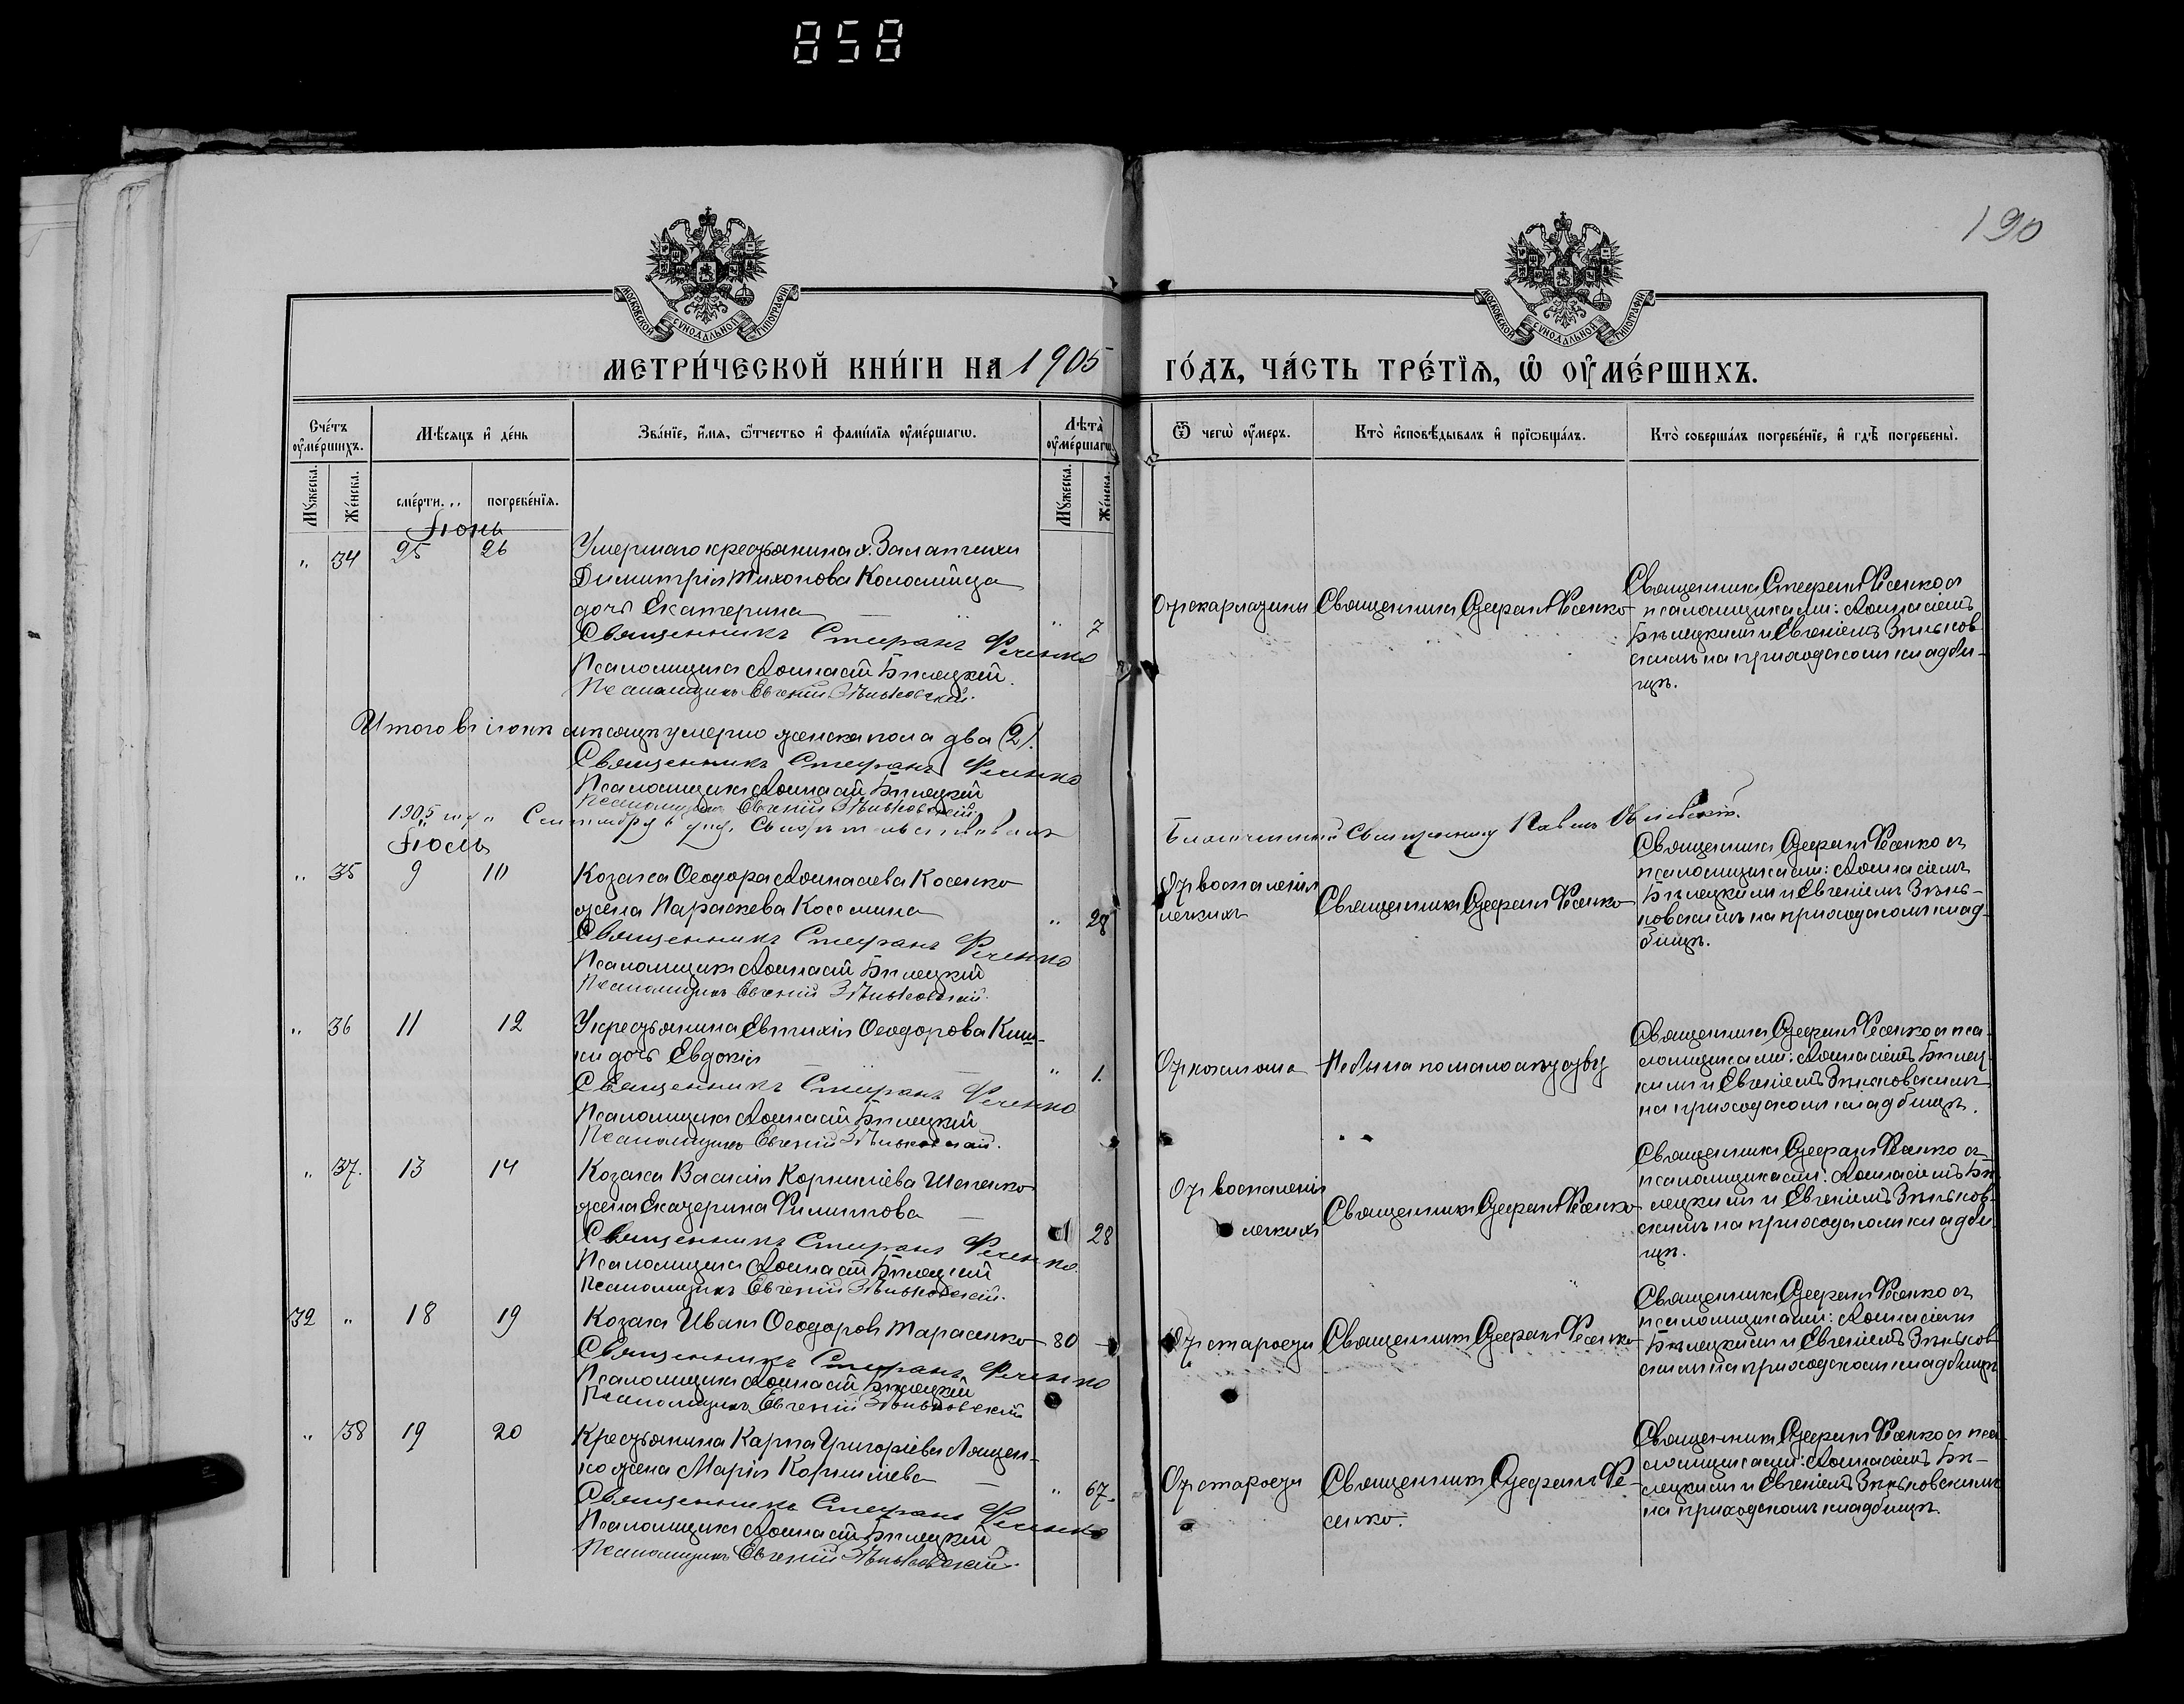 858
190
МОСКОВСКОЙ СѴНОДАЛЬНОЙ ТИПОГРАФІИ
МОСКОВСКОЙ СѴНОДАЛЬНОЙ ТИПОГРАФІИ
МЕТРИ́ЧЕСКОЙ КНИ́ГИ НА 1905 ГО́ДЪ, ЧА́СТЬ ТРЕ́ТЇѦ, Ѡ҆ ОУ҆МЕ́РШИХЪ.
Сче́тъ оу҆ме́ршихъ.
Мѣ́сѧцъ и҆ де́нь
Зва́нїе, и҆́мѧ, ѻ҆́тчество и҆ фами́лїѧ оу҆ме́ршагѡ.
Лѣ́та оу҆ме́ршагѡ
Ѿ чегѡ̀ оу҆́меръ.
Кто̀ и҆сповѣ́дывалъ и҆ прїѡбща́лъ.
Кто̀ соверша́лъ погребе́нїе, и҆ гдѣ̀ погребены̀.
Мꙋ́жеска. Же́нска. сме́рти. погребе́нїѧ. Мꙋ́жеска. Же́нска.
Іюнь
" 34 25 26 Умершаго крестьянина х.
Димитрія Тихонова Коломійца
дочь Екатерина " 7
Священникъ Стефанъ Фесенко
Псаломщикъ Аѳанасій Бѣлецкій.
Псаломщикъ Евгеній Зѣньковскій.
Отъ скарлатины
Священникъ Стефанъ Фесенко
Священникъ Стефанъ Фесенко съ
псаломщиками: Аѳанасіемъ
Бѣлецкимъ и Евгеніемъ Зѣньков-
скимъ на приходскомъ кладби-
щѣ.
Итого въ іюнѣ мѣсяцѣ умерло женска пола два (2).
Священникъ Стефанъ Фесенко
Псаломщикъ Аѳанасій Бѣлецкій
Псаломщикъ Евгеній Зѣньковскій.
1905 года Сентября 6 дня.
Благочинный Священникъ Павелъ
Іюль
" 35 9 10 Козака Ѳеодора Аѳанасіева Косенко
жена Параскева Космина " 28
Священникъ Стефанъ Фесенко
Псаломщикъ Аѳанасій Бѣлецкій
Псаломщикъ Евгеній Зѣньковскій.
Отъ воспаленія
легкихъ
Священникъ Стефанъ Фесенко
Священникъ Стефанъ Фесенко съ
псаломщиками: Аѳанасіемъ
Бѣлецкимъ и Евгеніемъ Зѣнь-
ковскимъ на приходскомъ клад-
бищѣ.
" 36 11 12 У крестьянина Евтихія Ѳеодорова Киш-
ки дочь Евдокія " 1.
Священникъ Стефанъ Фесенко
Псаломщикъ Аѳанасій Бѣлецкій
Псаломщикъ Евгеній Зѣньковскій.
Отъ коклюша
Не была по малолѣтству
Священникъ Стефанъ Фесенко съ пса-
ломщиками: Аѳанасіемъ Бѣлец-
кимъ и Евгеніемъ Зѣньковскимъ
на приходскомъ кладбищѣ.
" 37. 13 14 Козака Василія Корниліева
жена Екатерина Филиппова 28
Священникъ Стефанъ Фесенко.
Псаломщикъ Аѳанасій Бѣлецкій
Псаломщикъ Евгеній Зѣньковскій.
Отъ воспаленія
легкихъ
Священникъ Стефанъ Фесенко
Священникъ Стефанъ Фесенко съ
псаломщиками: Аѳанасіемъ Бѣ-
лецкимъ и Евгеніемъ Зѣньков-
скимъ на приходскомъ кладби-
щѣ.
32 " 18 19 Козакъ Иванъ Ѳеодоровъ Тарасенко 80
Священникъ Стефанъ Фесенко
Псаломщикъ Аѳанасій Бѣлецкій
Псаломщикъ Евгеній Зѣньковскій
Отъ старости
Священникъ Стефанъ Фесенко
Священникъ Стефанъ Фесенко съ
псаломщиками: Аѳанасіемъ
Бѣлецкимъ и Евгеніемъ Зѣньков-
скимъ на приходскомъ кладбищѣ
" 38 19 20 Крестьянина Карпа Григоріева Лящен-
ко жена Марія Корниліева " 67.
Священникъ Стефанъ Фесенко
Псаломщикъ Аѳанасій Бѣлецкій
Псаломщикъ Евгеній Зѣньковскій.
Отъ старости
Священникъ Стефанъ Фе-
сенко.
Священникъ Стефанъ Фесенко съ пса-
ломщиками: Аѳанасіемъ Бѣ-
лецкимъ и Евгеніемъ Зѣньковскимъ
на приходскомъ кладбищѣ.